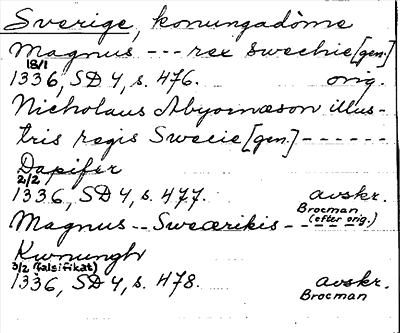 Sverige, konungadöme
Magnus --- rex swechie [gen.]
18/1
1336, SD 4, s. 476. orig.
Nicholaus Abyornæson illus-
tris regis Swecie [gen.] ------
Dapifer
2/2
1336, SD 4, s. 477. avskr.
Brocman
(efter orig.)
Magnus -- Sweærikis -----
Kwnungh
3/2 (falsifikat)
1336, SD 4, s. 478. avskr.
Brocman